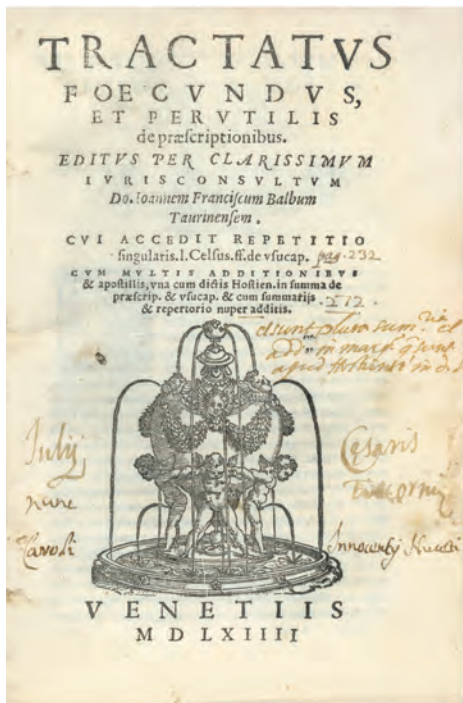 TRACTATVS
FOECVNDVS,
ET PERVTILIS
de præscriptionibus.
EDITVS PER CLARISSIMVM
IVRISCONSVLTVM
Do. Ioannem Franciscum Balbum
Taurinensem.
CVI ACCEDIT REPETITIO
singularis.l.Celsus.ff.de vsucap. pag. 232
CVM MVLTIS ADDITIONIBVS
& apostillis, vna cum dictis Hostien. in summa de
præscrip. & vsucap. & cum summarijs
& repertorio nuper additis.
in marg.
Iulij
Cesaris
nunc
Caroli
Innocentij
VENETIIS
MDLXIIII